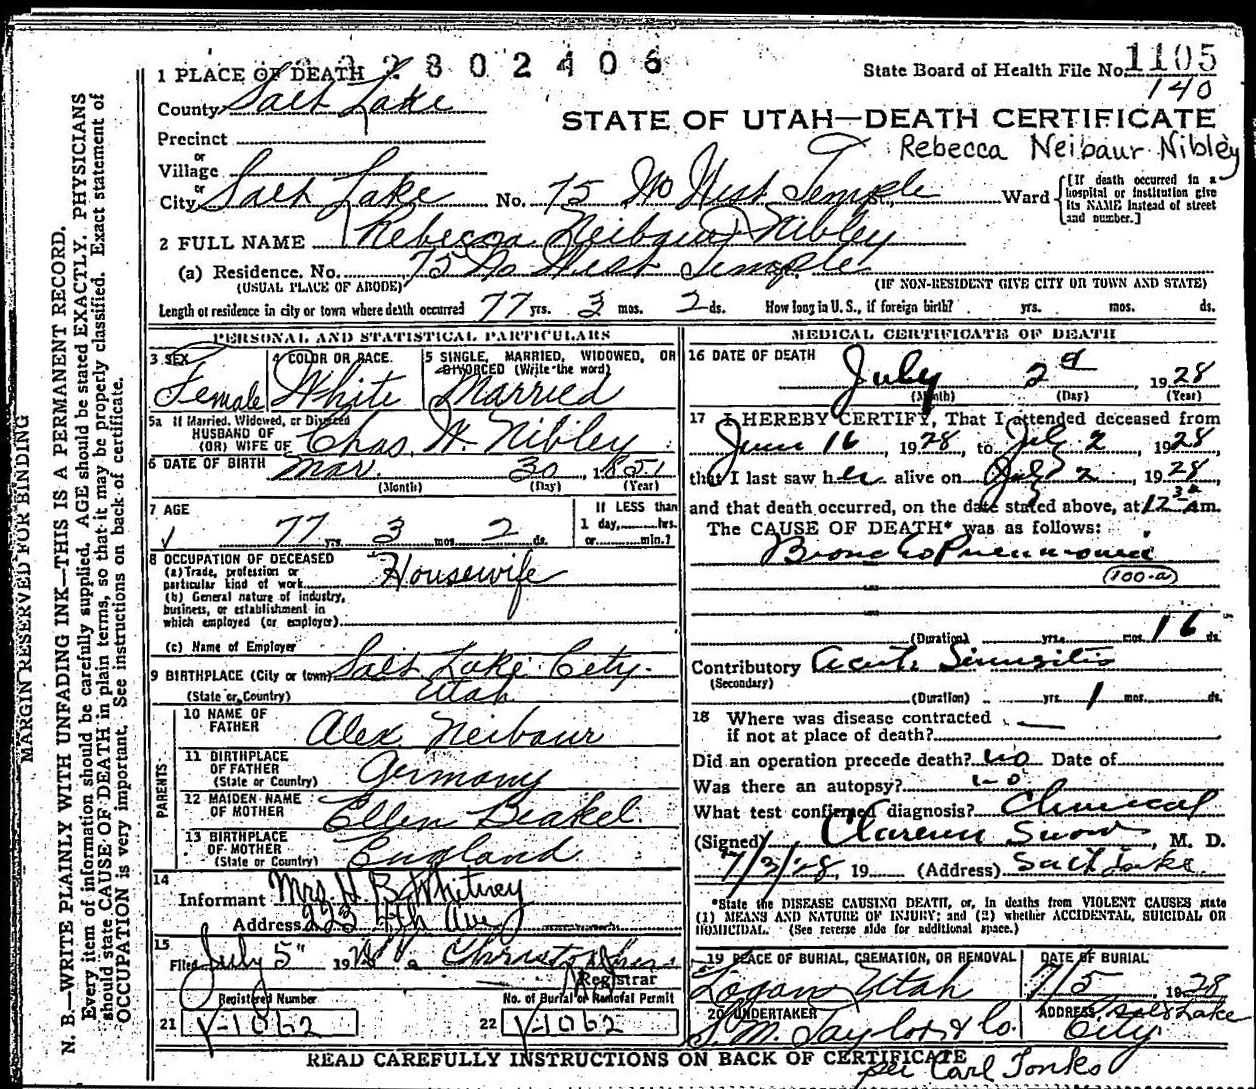 2802406
1 PLACE OF DEATH
State Board of Health File No. 1105
140
County Salt Lake
STATE OF UTAH—DEATH CERTIFICATE
Precinct
Rebecca Neibaur Nibley
or
Village
or
City Salt Lake No. 75 No West Temple St., Ward
[If death occurred in a hospital or institution give its NAME instead of street and number.]
2 FULL NAME Rebecca Neibaur Nibley
(a) Residence. No. 75 No West Temple
(USUAL PLACE OF ABODE) (IF NON-RESIDENT GIVE CITY OR TOWN AND STATE)
Length of residence in city or town where death occurred 77 yrs. 3 mos. 2 ds. How long in U.S., if foreign birth? yrs. mos. ds.
PERSONAL AND STATISTICAL PARTICULARS
3 SEX
Female
4 COLOR OR RACE.
White
5 SINGLE, MARRIED, WIDOWED, OR
DIVORCED (Write the word)
Married
5a If Married, Widowed, or Divorced
HUSBAND OF
(OR) WIFE OF Chas. W. Nibley
6 DATE OF BIRTH Mar. 30 1851
(Month) (Day) (Year)
7 AGE
77 yrs. 3 mos. 2 ds.
If LESS than
1 day, hrs.
or min.?
8 OCCUPATION OF DECEASED
(a) Trade, profession or
particular kind of work Housewife
(b) General nature of industry,
business, or establishment in
which employed (or employer)
(c) Name of Employer
9 BIRTHPLACE (City or town) Salt Lake City.
(State or Country) Utah
PARENTS
10 NAME OF
FATHER Alex Neibaur
11 BIRTHPLACE
OF FATHER
(State or Country) Germany
12 MAIDEN NAME
OF MOTHER Ellen Beakel.
13 BIRTHPLACE
OF MOTHER
(State or Country) England
14
Informant Mrs. H. B. Whitney
Address 223 4th Ave
15
Filed July 5" 1928
Registrar
Registered Number
21 V-1062
No. of Burial or Removal Permit
22 V-1062
MEDICAL CERTIFICATE OF DEATH
16 DATE OF DEATH
July 2d, 1928
(Month) (Day) (Year)
17 I HEREBY CERTIFY, That I attended deceased from
June 16, 1928, to July 2 1928
that I last saw her alive on July 2, 1928,
and that death occurred, on the date stated above, at 12 30 a m.
The CAUSE OF DEATH* was as follows:
Broncho Pneumonia
(100-a)
(Duration) yrs. mos. 16 ds.
Contributory Acute Sinusitis
(Secondary)
(Duration) yrs. 1 mos. ds.
18 Where was disease contracted
if not at place of death?
Did an operation precede death? no Date of
Was there an autopsy? no
What test confirmed diagnosis? Clinical
(Signed) Clarence Snow, M. D.
7/2/28, 19 (Address) Salt Lake
*State the DISEASE CAUSING DEATH, or, in deaths from VIOLENT CAUSES state
(1) MEANS AND NATURE OF INJURY; and (2) whether ACCIDENTAL, SUICIDAL OR
HOMICIDAL. (See reverse side for additional space.)
19 PLACE OF BURIAL, CREMATION, OR REMOVAL
Logan Utah
DATE OF BURIAL
7/5 1928
20 UNDERTAKER
S. M. Taylor & Co.
ADDRESS Salt Lake
City
READ CAREFULLY INSTRUCTIONS ON BACK OF CERTIFICATE
per Carl Tonks
MARGIN RESERVED FOR BINDING
N. B.—WRITE PLAINLY WITH UNFADING INK—THIS IS A PERMANENT RECORD.
Every item of information should be carefully supplied. AGE should be stated EXACTLY. PHYSICIANS
should state CAUSE OF DEATH in plain terms, so that it may be properly classified. Exact statement of
OCCUPATION is very important. See instructions on back of certificate.